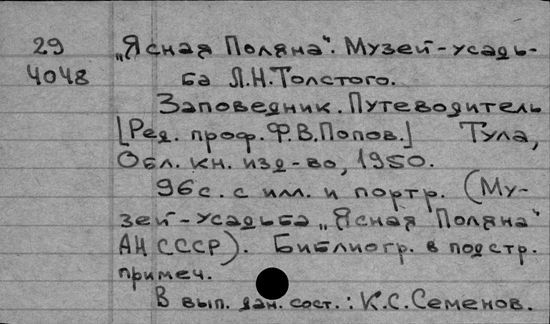 29 „Ясная Поляна". Музей-усадь-
4048 ба Л.Н.Толстого.
Заповедник. Путеводитель
[Ред. проф. Ф.В.Попов.] Тула,
Обл. кн. изд-во, 1950.
96с. с илл. и портр. (Му-
зей-усадьба „Ясная Поляна"
АН СССР). Библиогр. в подстр.
примеч.
В вып. дан. сост.: К.С.Семенов.